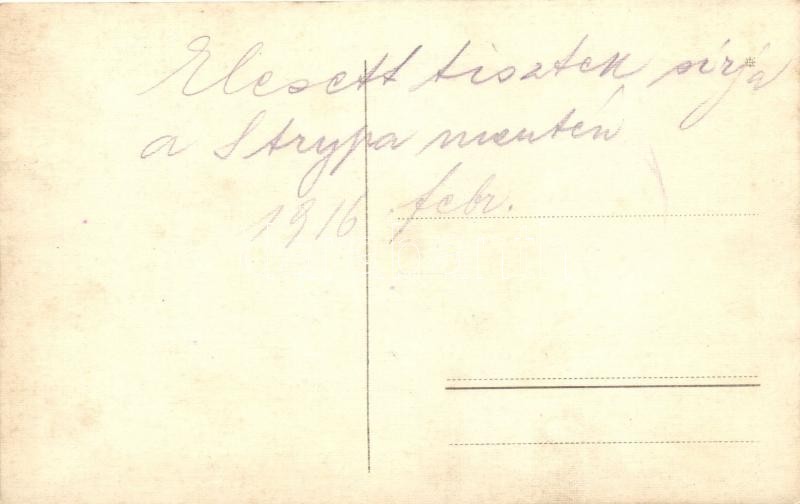 Elesett tisztek sírja
a Strypa mentén
1916 febr.